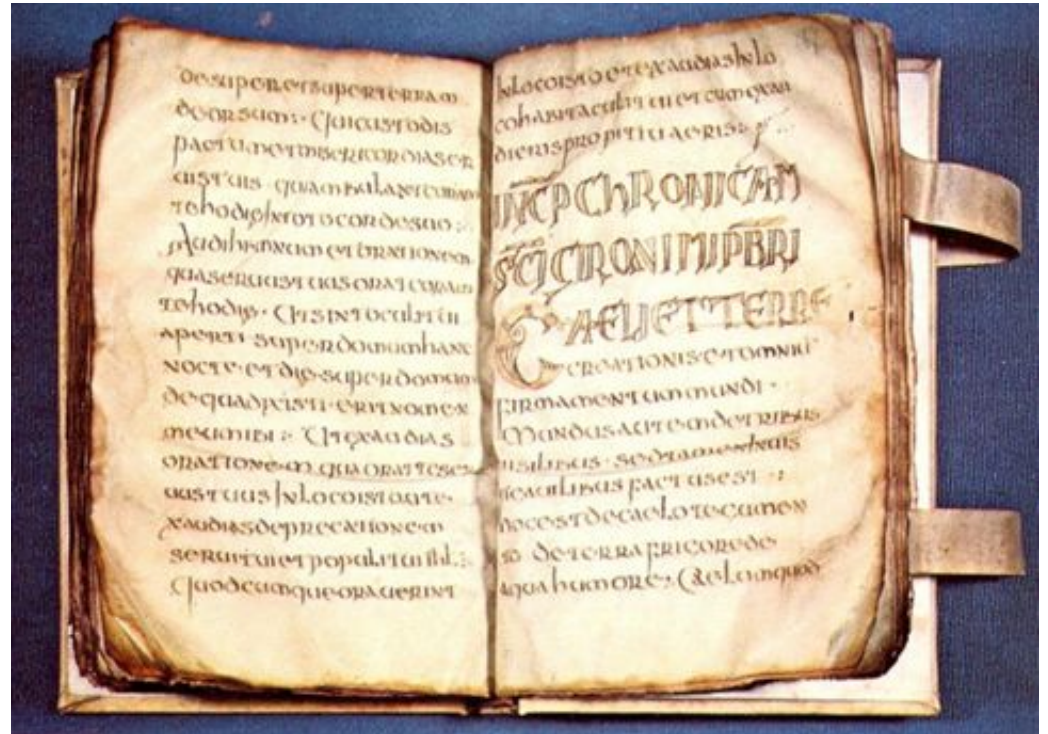 desuper et super terram
deorsum: · Qui custodis
pactum et misericordias ser
uis tuis · qui ambulant coram
te hodie in toto corde suo :·
Audi hymnum et orationem
qua seruus tuus orat coram
te hodie · Ut sint oculi tui
aperti super domum hanc
nocte · et die · super domum
de qua dixisti · erit nomen
meum ibi : Ut exaudias
orationem qua orat te ser
uus tuus in loco isto ut e
xaudias deprecationem
serui tui et populi tui ihl :·
Quodcumque orauerint
in loco isto et exaudias in lo
co habitaculi tui et cum exau
dieris propitius eris :
INCP CHRONICA
SCI GIRONIMI PBRI
CAELI ET TERRE
creationis et omniu
firmamentum mundi ·
Mundus autem de tribus
uisilibus · sed tamen
factus est :·
hoc est de caelo
de terra frigore de
aqua humore · Caelum quod